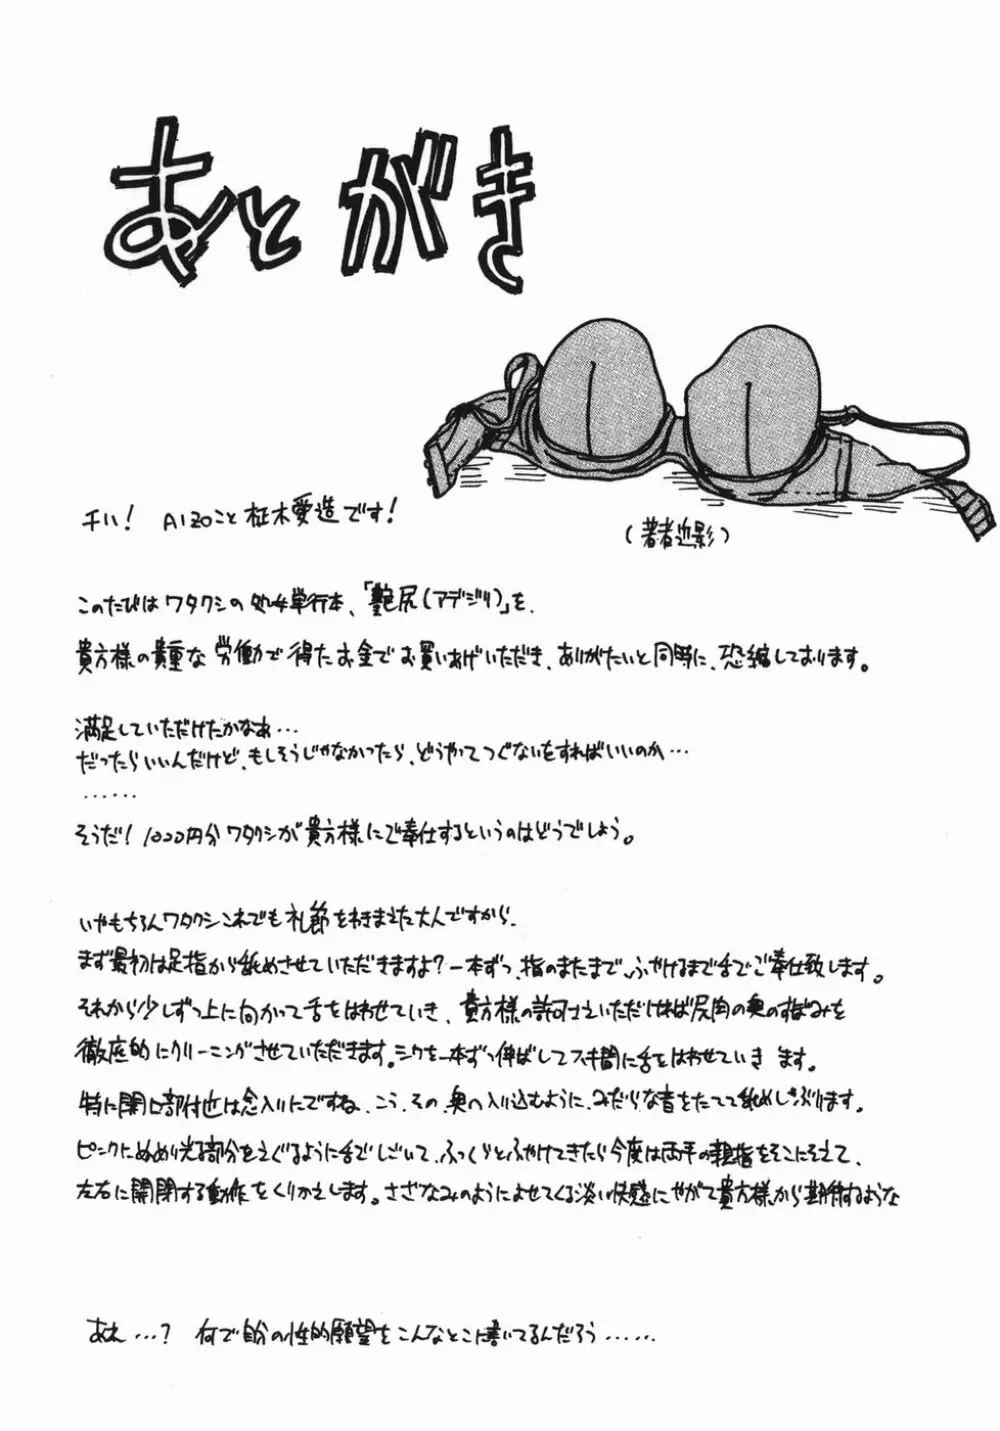 あとがき
チハ! AIZOこと柾木愛造です!
(著者近影)
このたびはワタクシの処女単行本、「艶尻(アデジリ)」を、
貴方様の貴重な労働で得たお金でお買いあげいただき、ありがたいと同時に、恐縮しております。
満足していただけたかなぁ…
だったらいいんだけど、もしそうじゃなかったら、どうやってつぐないをすればいいのか…
……
そうだ! 1000円分ワタクシが貴方様にご奉仕するというのはどうでしょう。
いやもちろんワタクシこれでも礼節をわきまえた大人ですから、
まず最初は足指から舐めさせていただきますよ?一本ずつ、指のまたまで、ふやけるまで舌でご奉仕致します。
それから少しずつ上に向かって舌をはわせていき、貴方様の許可さえいただければ尻肉の奥のすぼみを
徹底的にクリーニングさせていただきます。シワを一本ずつ伸ばしてスキ間に舌をはわせていき ます。
特に開口部付近は念入りにですね、こう、その、奥へ入り込むように、みだらな音をたてて舐めしゃぶります。
ピンクにぬめり光る部分をえぐるように舌でしごいて、ふっくらとふやけてきたら今度は両手の親指をそこにそえて、
左右に開閉する動作をくりかえします。さざなみのようによせてくる淡い快感にやがて貴方様から期待するような
あれ…? 何で自分の性的願望をこんなとこに書いてるんだろう……